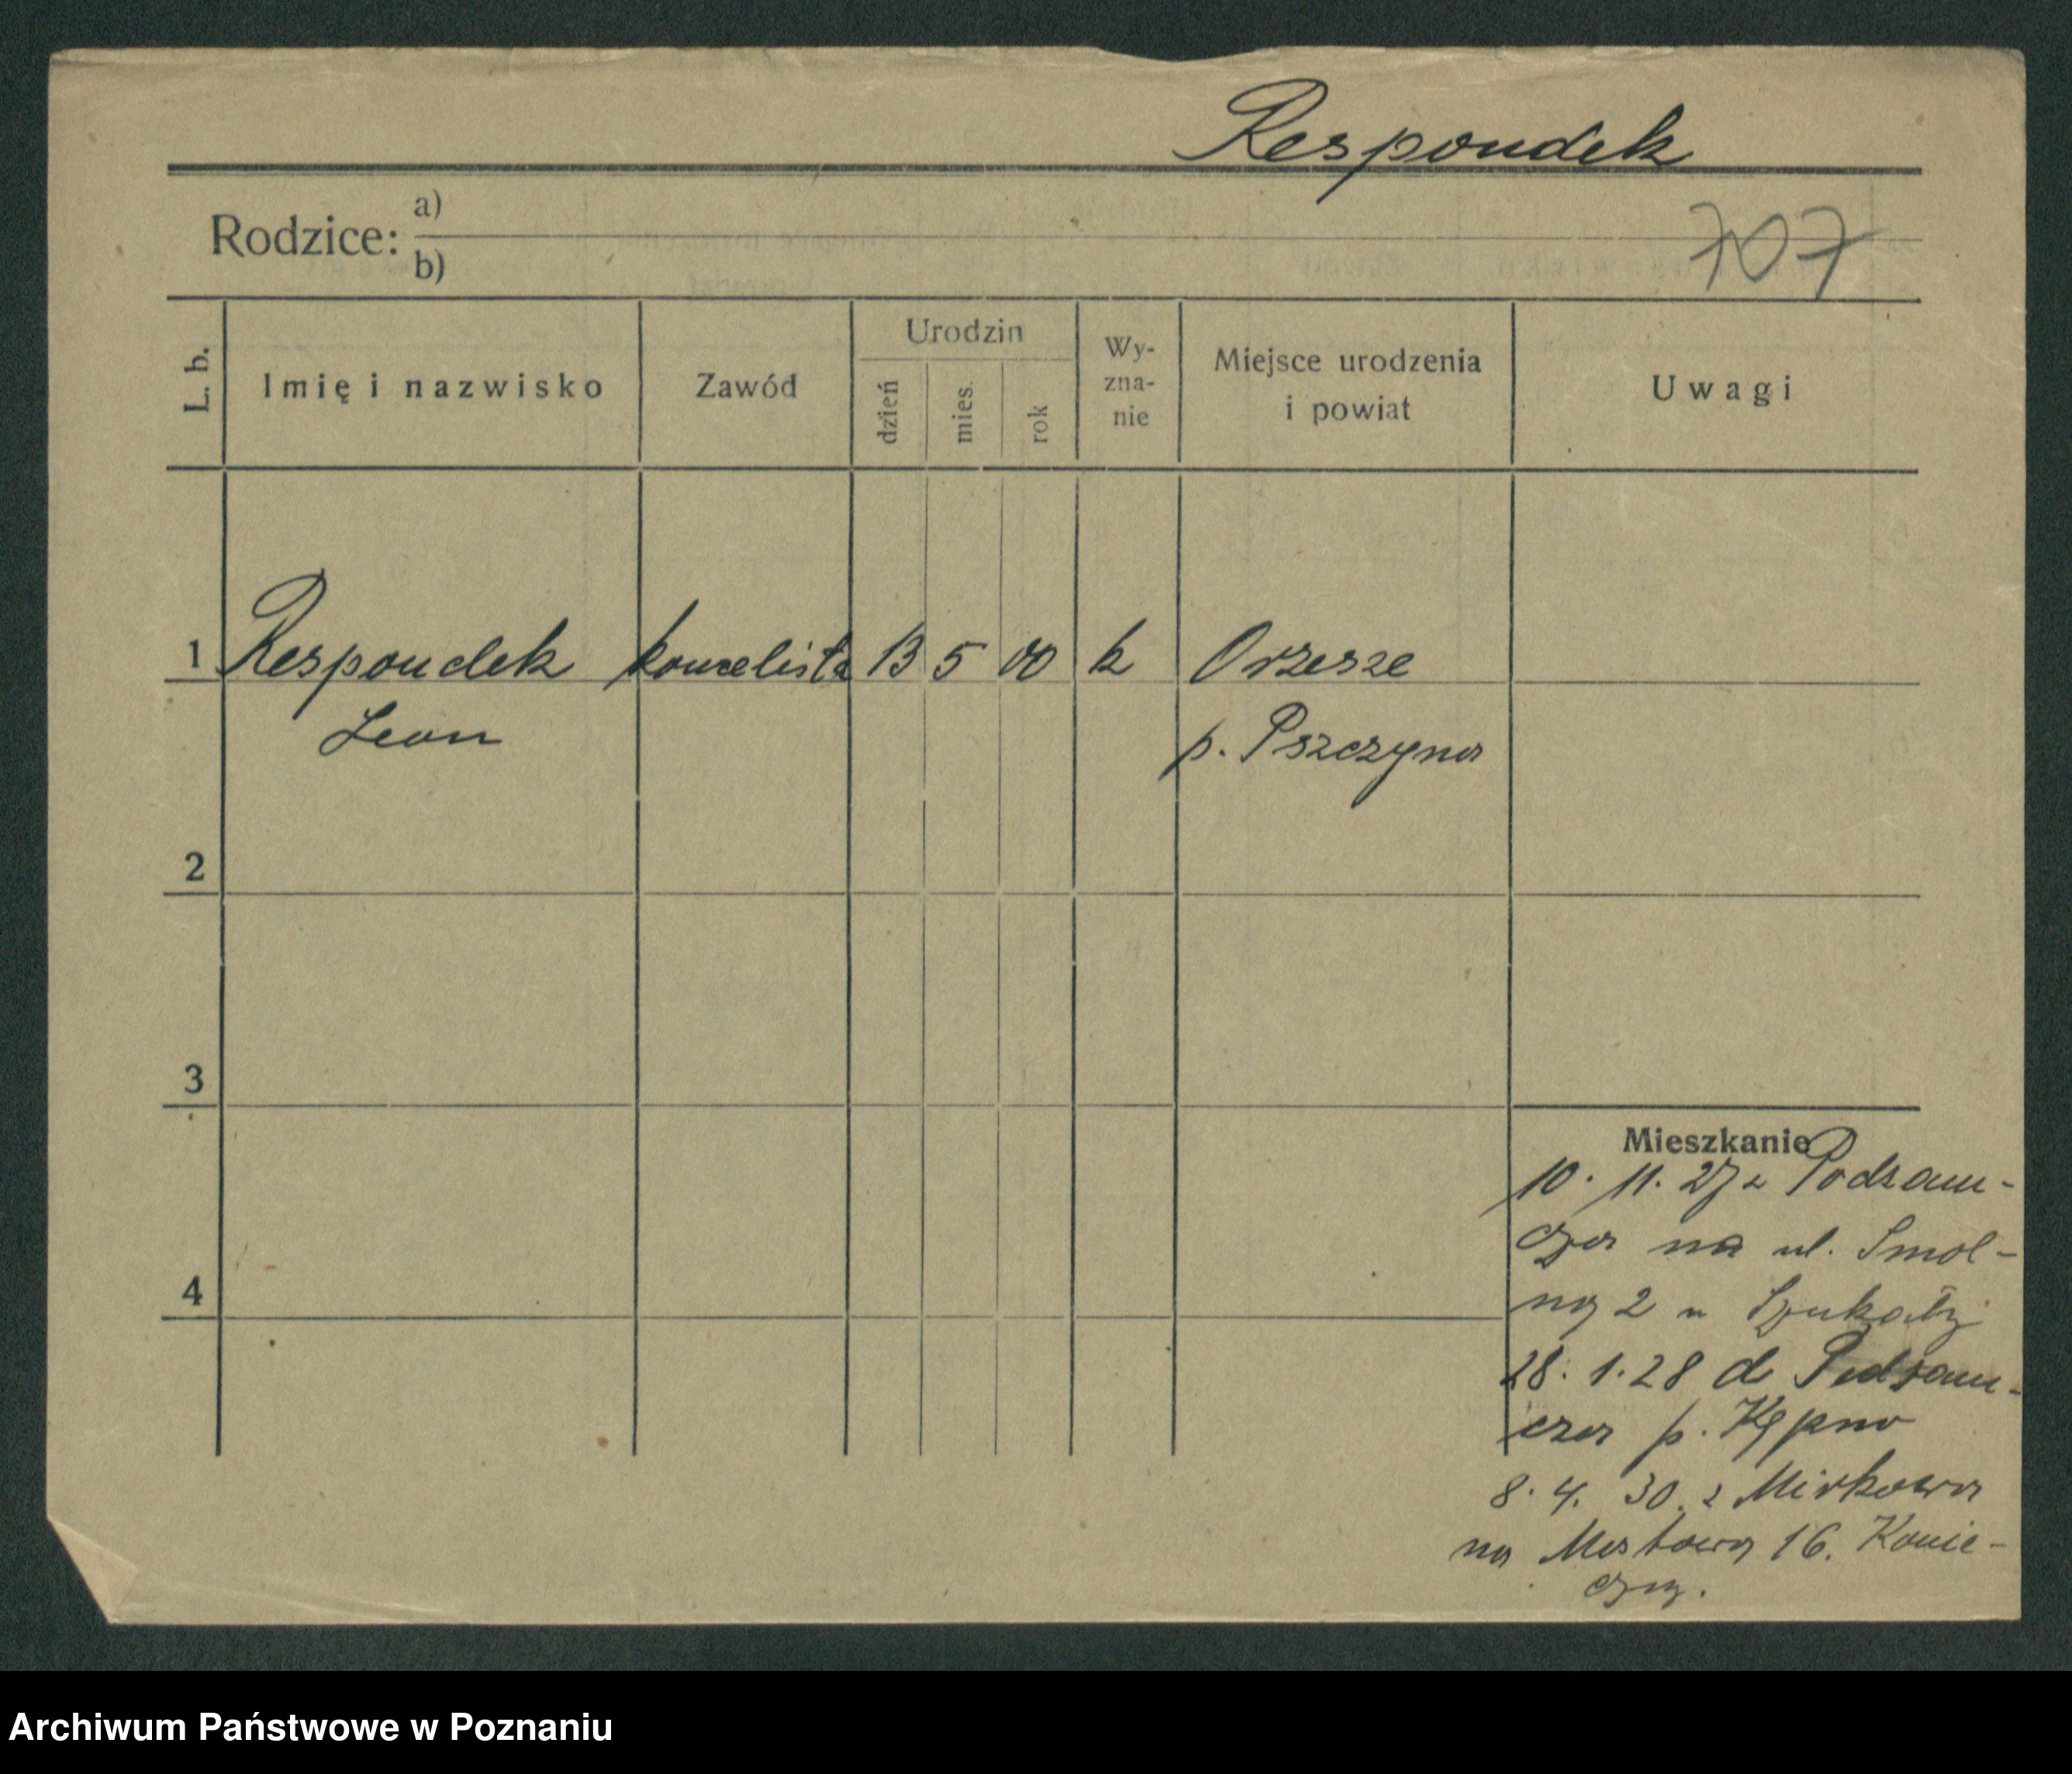 Respondek
Rodzice: a)
b)
707
L. b.
Imię i nazwisko
Zawód
Urodzin
dzień
mies.
rok
Wy-
zna-
nie
Miejsce urodzenia
i powiat
Uwagi
1 Respondek kancelista 13 5 00 k Orzesze
Leon p. Pszczyna
2
3
4
Mieszkanie
10. 11. 27 z Podzam-
cza na ul. Smol-
ną 2 u
28. 1. 28 do Podzam-
cza p. Kępno
8. 4. 30. z Mirkowa
na 16. Konie-
czny.
Archiwum Państwowe w Poznaniu